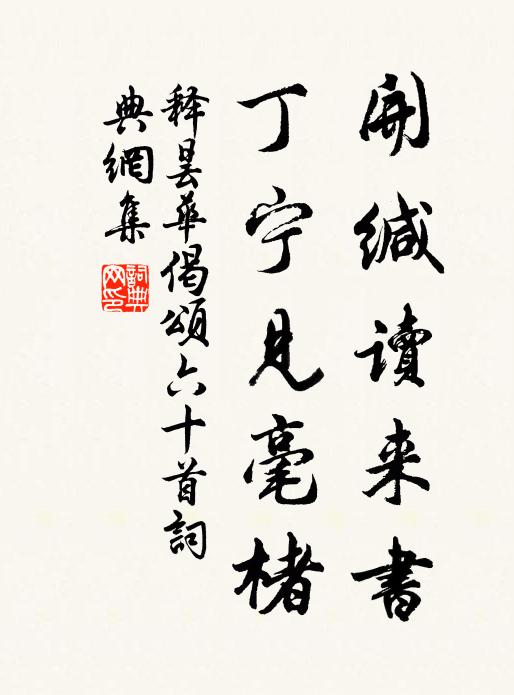 開緘讀来書
丁宁見毫楮
释曇華偈頌六十首詞
典網集
詞典网印